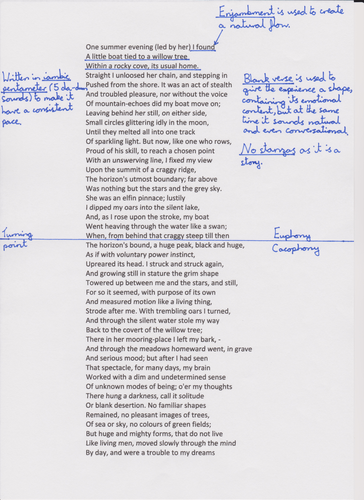 Enjambment is used to create
a natural flow.
One summer evening (led by her) I found
A little boat tied to a willow tree
Within a rocky cove, its usual home.
Straight I unloosed her chain, and stepping in
Pushed from the shore. It was an act of stealth
And troubled pleasure, nor without the voice
Of mountain-echoes did my boat move on;
Leaving behind her still, on either side,
Small circles glittering idly in the moon,
Until they melted all into one track
Of sparkling light. But now, like one who rows,
Proud of his skill, to reach a chosen point
With an unswerving line, I fixed my view
Upon the summit of a craggy ridge,
The horizon's utmost boundary; far above
Was nothing but the stars and the grey sky.
She was an elfin pinnace; lustily
I dipped my oars into the silent lake,
And, as I rose upon the stroke, my boat
Went heaving through the water like a swan;
When, from behind that craggy steep till then
The horizon's bound, a huge peak, black and huge,
As if with voluntary power instinct,
Upreared its head. I struck and struck again,
And growing still in stature the grim shape
Towered up between me and the stars, and still,
For so it seemed, with purpose of its own
And measured motion like a living thing,
Strode after me. With trembling oars I turned,
And through the silent water stole my way
Back to the covert of the willow tree;
There in her mooring-place I left my bark, -
And through the meadows homeward went, in grave
And serious mood; but after I had seen
That spectacle, for many days, my brain
Worked with a dim and undetermined sense
Of unknown modes of being; o'er my thoughts
There hung a darkness, call it solitude
Or blank desertion. No familiar shapes
Remained, no pleasant images of trees,
Of sea or sky, no colours of green fields;
But huge and mighty forms, that do not live
Like living men, moved slowly through the mind
By day, and were a trouble to my dreams
Written in iambic
pentameter (5 da-dum
sounds) to make it
have a consistent
pace.
Blank verse is used to
give the experience a shape,
containing its emotional
content, but at the same
time it sounds natural
and even conversational
No stanzas as it is a
story.
Turning
point
Euphony
Cacophony